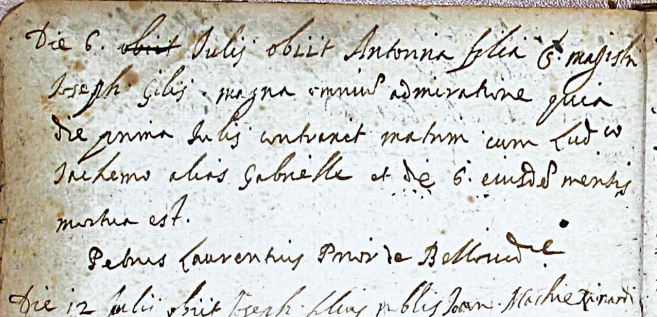 Die 6. obiit Julij obiit Antonina filia q. magistri
Joseph Gilij magna omniũ admiratione quia
die prima Julij contraxit matrim cum Ludco
Jachemo alias Gabrielle et die 6 eiusdẽ mensis
mortua est.
Petrus Laurentius Prior de
Die 12 Julii obiit Joseph filius nobilis Joan